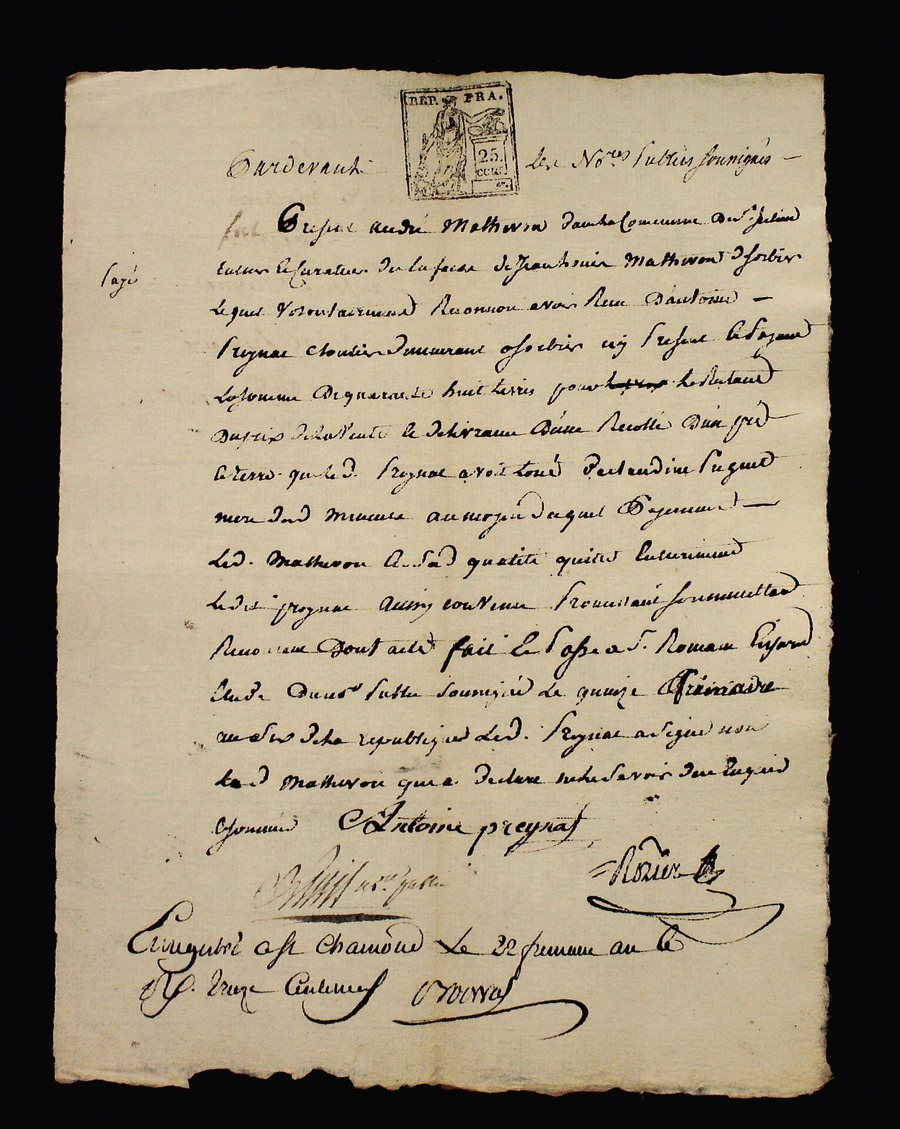 REP. FRA.
25. cent.
Pardevant les No.res Publics soussignés
fut Present andré Matheron de la Commune De St. julien
payé
tuteur et Curateur de Matheron d sorbier
Lequel volontairement Reconnoit avoir Reçu D'antoine
Preynat cloutier demeurant a sorbier icy Present et Payant
La somme De quarante huit livres pour le Restant
Du prix de la vente et delivrance D'une Recolte D'un pré
et terre que led. Preynat avoit loué De Claudine Puynet
mere dud mineur au moyen duquel Payement
Led. Matheron en sad qualité quitte Entierement
Ledit preynat ainsy convenu Promettant soumettant
Renoncant Dont acte fait et Passé a St. Romain En Jared
Etude Du nore Public soussigné Le quinze frimaire
an six de la republique Led. Preynat a signé non
Led Matheron qui a declaré ne le savoir de ce Enquis
et sommé Antoine preynat
nore public
Rozier
Enregistré a St Chamond Le 22 frimaire an 6
R. Centimes